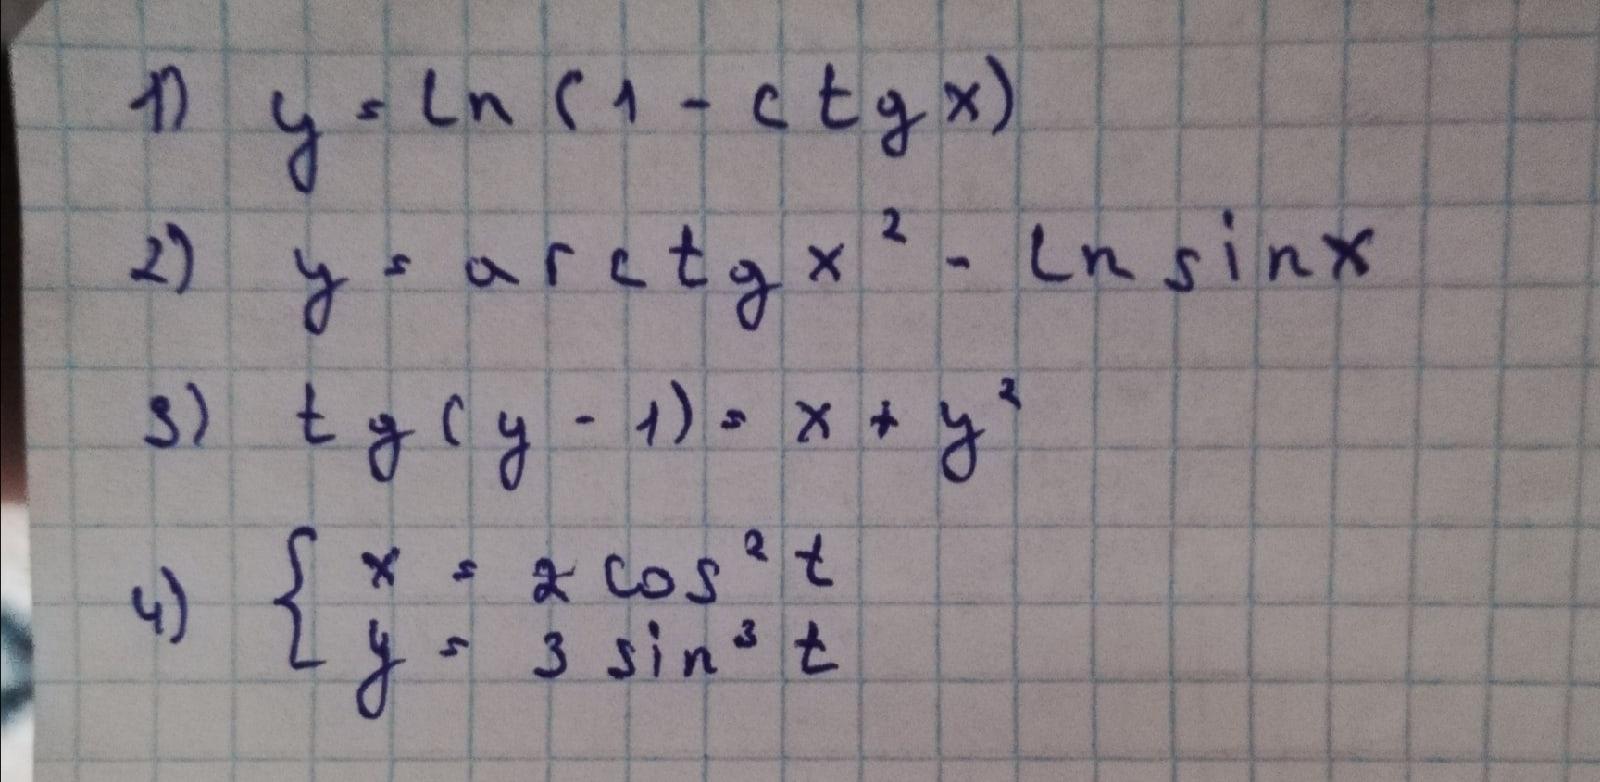 1) y = ln(1 - ctgx)
2) y = arctgx² - ln sinx
3) tg(y - 1) = x + y²
4) { x = 2 cos² t
y = 3 sin³ t